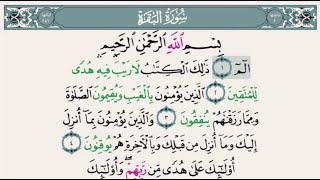 سُورَةُ البَقَرَةِ
بِسْمِ اللَّهِ الرَّحْمَٰنِ الرَّحِيمِ
الٓمٓ ۝١ ذَٰلِكَ الْكِتَٰبُ لَا رَيْبَ فِيهِ هُدًى
لِّلْمُتَّقِينَ ۝٢ الَّذِينَ يُؤْمِنُونَ بِالْغَيْبِ وَيُقِيمُونَ الصَّلَوٰةَ
وَمِمَّا رَزَقْنَٰهُمْ يُنفِقُونَ ۝٣ وَالَّذِينَ يُؤْمِنُونَ بِمَا أُنزِلَ
إِلَيْكَ وَمَا أُنزِلَ مِن قَبْلِكَ وَبِالْآخِرَةِ هُمْ يُوقِنُونَ ۝٤
أُو۟لَٰٓئِكَ عَلَىٰ هُدًى مِّن رَّبِّهِمْ وَأُو۟لَٰٓئِكَ